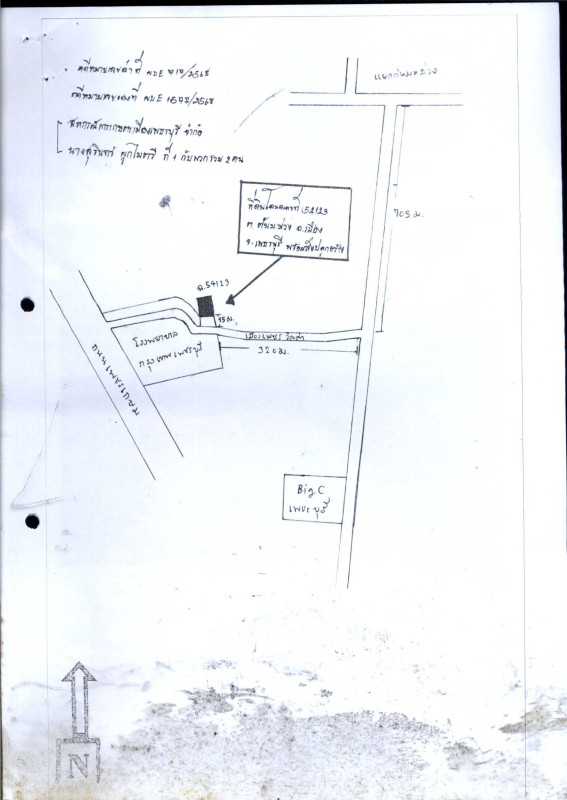 คดีหมายเลขดำที่ ผบE ๆ๑๖/2568
คดีหมายเลขแดงที่ ผบE 1693/2568
สหกรณ์การเกษตรเมืองเพชรบุรี จำกัด
นางสุรินทร์ ผูกไมตรี ที่ 1 กับพวกรวม 2 คน
ที่ดินโฉนดเลขที่ 54123
ต. ต้นมะม่วง อ.เมือง
จ.เพชรบุรี พร้อมสิ่งปลูกสร้าง
ฉ.54123
15 ม.
705 ม.
เมืองเพชร
320 ม.
โรงพยาบาล
กรุงเทพเพชรบุรี
ถนนเพชรเกษม
Big C
เพชรบุรี
N